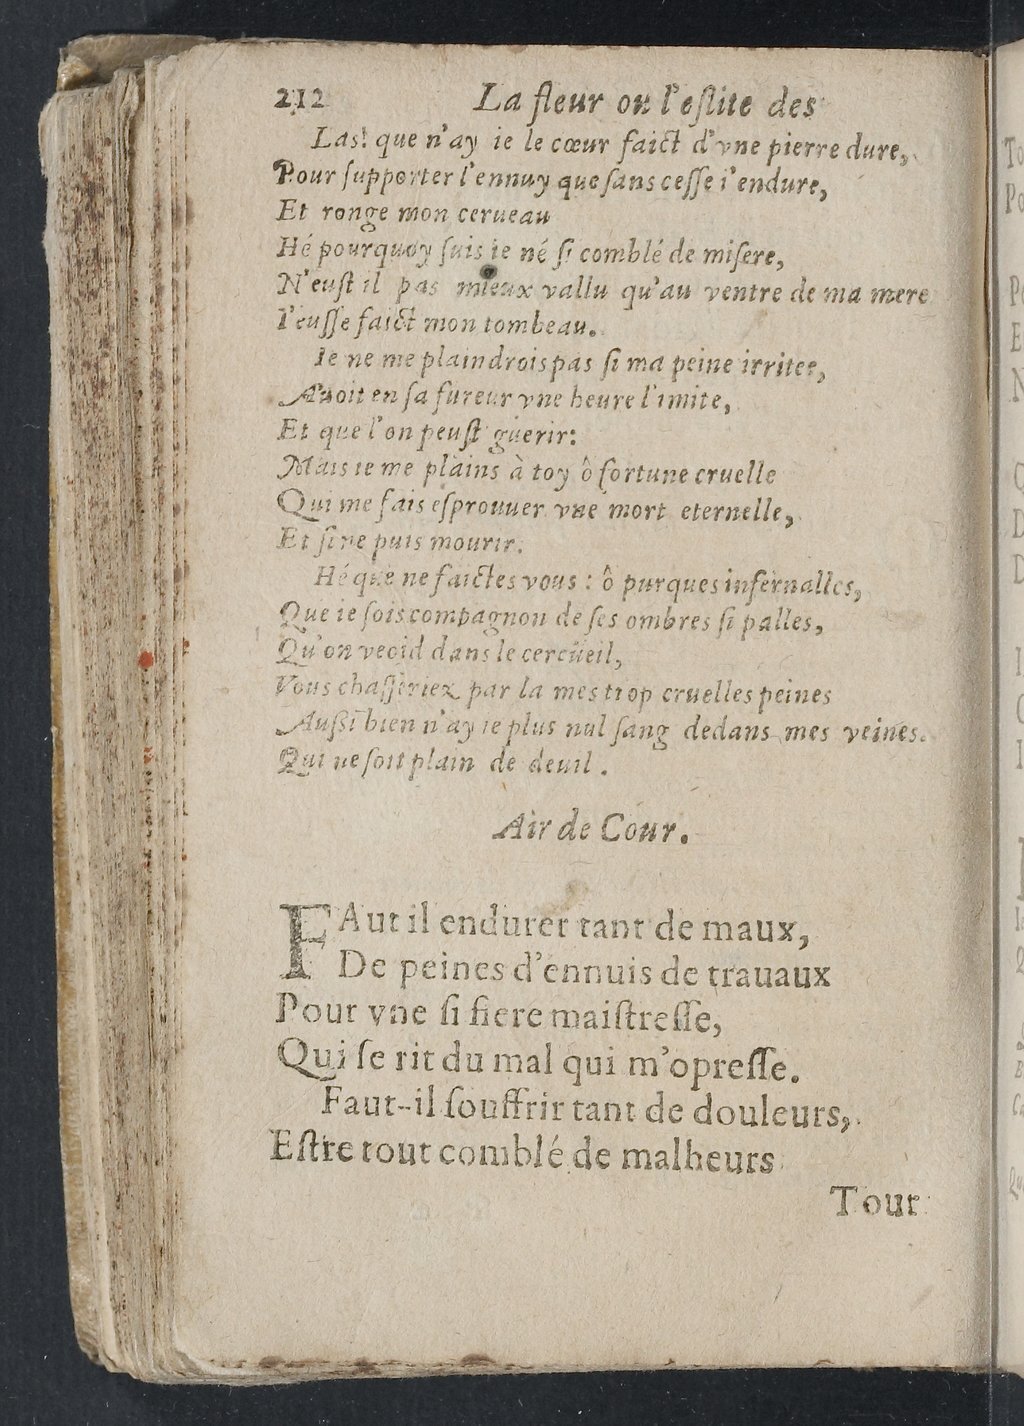 212 La fleur ou l'eſlite des
Las! que n'ay ie le cœur faict d'vne pierre dure,
Pour ſupporter l'ennuy que ſans ceſſe i'endure,
Et ronge mon cerueau
Hé pourquoy ſuis ie né ſi comblé de miſere,
N'euſt il pas mieux vallu qu'au ventre de ma mere
I'euſſe faict mon tombeau.
Ie ne me plaindrois pas ſi ma peine irritee,
Auoit en ſa fureur vne heure limite,
Et que l'on peuſt guerir:
Mais ie me plains à toy ô fortune cruelle
Qui me fais eſprouuer vne mort eternelle,
Et ſi ne puis mourir.
Hé que ne faictes vous : ô purques infernalles,
Que ie ſois compagnon de ſes ombres ſi palles,
Qu'on veoid dans le cercüeil,
Vous chaſſeriez par la mes trop cruelles peines
Auſſi bien n'ay ie plus nul ſang dedans mes veines.
Qui ne ſoit plain de deuil.
Air de Cour.
FAut il endurer tant de maux,
De peines d'ennuis de trauaux
Pour vne ſi fiere maiſtreſſe,
Qui ſe rit du mal qui m'opreſſe.
Faut-il ſouffrir tant de douleurs,
Eſtre tout comblé de malheurs
Tout